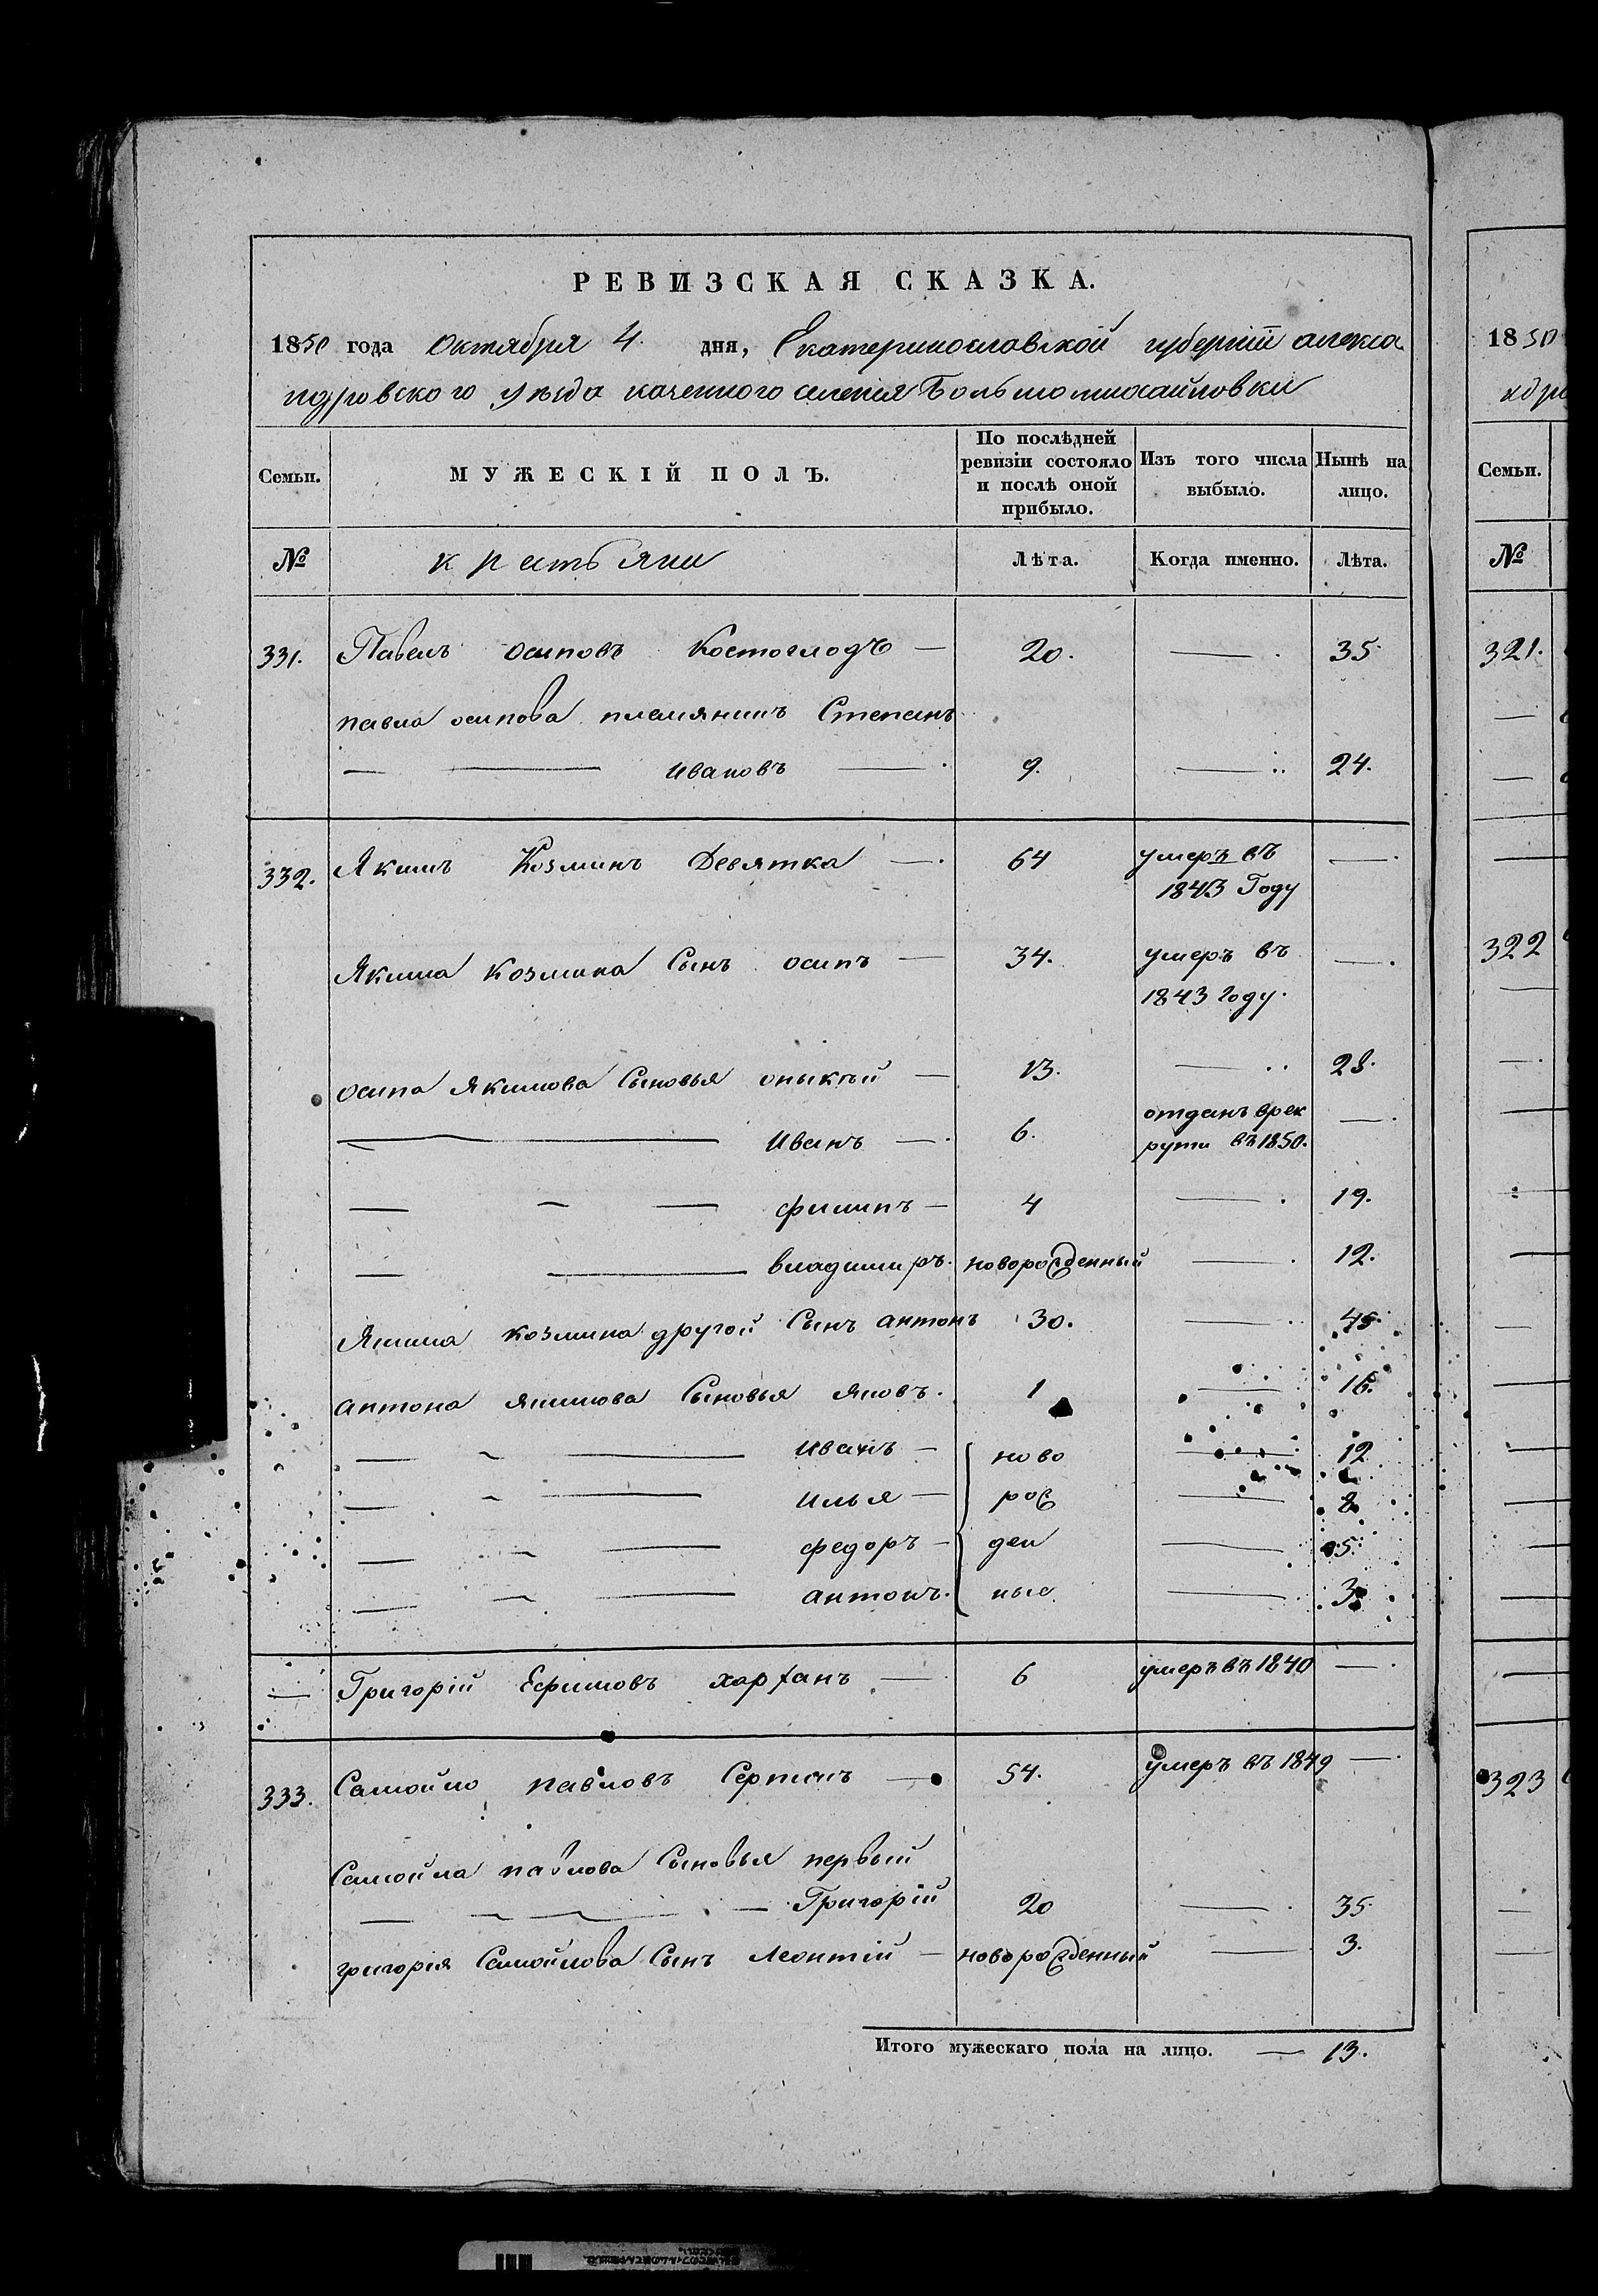 РЕВИЗСКАЯ СКАЗКА.
1850 года октября 4. дня, Екатеринославской губернiи алекса
ндровского уѣзда казенного селенiя Большомихайловки
Семьи. МУЖЕСКIЙ ПОЛЪ. По послѣдней ревизiи состояло и послѣ оной прибыло. Изъ того числа выбыло. Нынѣ на лицо.
№ крестьяни Лѣта. Когда именно. Лѣта.
331. Павелъ осиповъ Костоглодъ — 20. — 35.
павла осипова племянникъ Степанъ
— — ивановъ — 9. — 24.
332. Якимъ Козминъ Девятка — 64 умеръ въ 1843 Году —
Якима козмина Сынъ осипъ — 34. умеръ въ 1843 году. —
осипа якимова Сыновья — 13. — 28.
— иванъ — 6. отданъ врек рути въ 1850. —
— — — филипъ — 4 — 19.
— — владимиръ. новорожденный — 12.
Якима козмина другой Сынъ антонъ 30. — 45.
антона якимова Сыновья яковъ. 1 — 16.
— — — иванъ — ново — 12
— — — илья — рож — 8
— — — федоръ — ден — 5.
— — — антонъ. ные — 3
— Григорiй Ефимовъ — 6 умеръ въ 1840 —
333. Самойло павловъ — 54. умеръ въ 1849 —
Самойла павлова Сыновья первый
— — — Григорiй 20 — 35.
григорiя Самойлова Сынъ Леонтiй — новорожденный — 3.
Итого мужескаго пола на лицо. — 13.
1850
ндро
Семьи.
№
321.
322
323